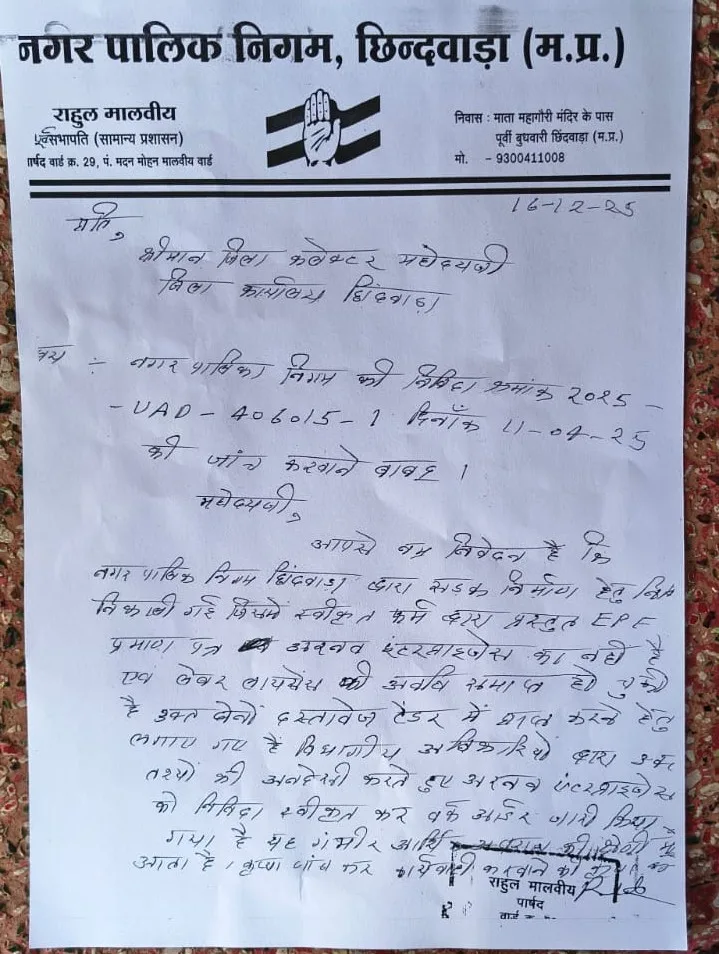 नगर पालिक निगम, छिन्दवाड़ा (म.प्र.)
राहुल मालवीय
पूर्व सभापति (सामान्य प्रशासन)
पार्षद वार्ड क्र. 29, पं. मदन मोहन मालवीय वार्ड
निवास : माता महागौरी मंदिर के पास
पूर्वी बुधवारी छिंदवाड़ा (म.प्र.)
मो. - 9300411008
16-12-25
प्रति,
श्रीमान जिला कलेक्टर महोदयजी
जिला कार्यालय छिंदवाड़ा
:- नगर पालिका निगम की निविदा क्रमांक 2025 -
- UAD - 406015 - 1 दिनाँक 11-04-25
की जांच करवाने बावद ।
महोदयजी,
आपसे नम्र निवेदन है कि
नगर पालिक निगम छिंदवाड़ा द्वारा सड़क निर्माण हेतु
निकाली गई जिसमें स्वीकृत फर्म द्वारा प्रस्तुत EPF
प्रमाण पत्र अरनव एंटरप्राइजेस का नही है
एवं लेबर लायसेंस की अवधि समाप्त हो चुकी
है उक्त दोनों दस्तावेज टेंडर में प्राप्त करने हेतु
लगाए गए हैं विभागीय अधिकारियों द्वारा उक्त
तथ्यों की अनदेखी करते हुए अरनव एंटरप्राइजेस
को निविदा स्वीकृत कर वर्क आर्डर जारी किया
गया है यह गंभीर आर्थिक अपराध की श्रेणी में
आता है । कृपया जांच कर कार्यवाही करवाने का
राहुल मालवीय
पार्षद